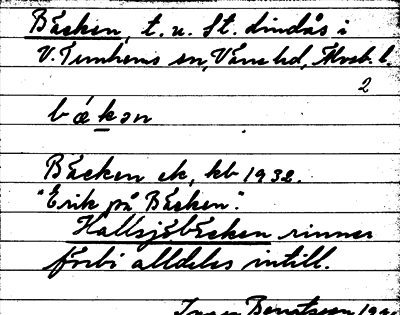 Bäcken, t. u. St. Lindås i
V. Tunhems sn, Väne hd, Älvsb. l.
2
bǽkən
Bäcken ek, kb 1932.
"Erik på Bäcken".
Hallsjöbäcken rinner
förbi alldeles intill.